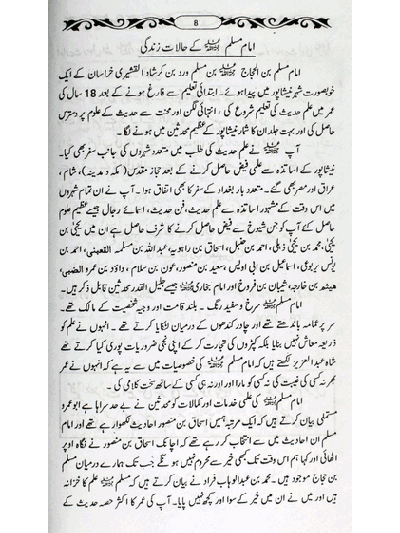 8
امام مسلم ﷫ کے حالات زندگی
امام مسلم بن الحجاج ﷫ بن مسلم ورد بن کرشاد القشیری خراسان کے ایک
خوبصورت شہر نیشاپور میں پیدا ہوئے۔ ابتدائی تعلیم سے فارغ ہونے کے بعد 18 سال کی
عمر میں علم حدیث کی تعلیم شروع کی، انتہائی لگن اور محنت سے حدیث کے علوم پر دسترس
حاصل کی اور بہت جلد ان کا شمار نیشاپور کے عظیم محدثین میں ہونے لگا۔
آپ ﷫ نے علم حدیث کی طلب میں متعدد شہروں کی جانب سفر بھی کیا۔
نیشاپور کے اساتذہ سے علمی فیض حاصل کرنے کے بعد حجاز مقدس (مکہ و مدینہ)، شام،
عراق اور مصر بھی گئے۔ متعدد بار بغداد کے سفر کا بھی اتفاق ہوا۔ آپ نے ان تمام شہروں
میں اس وقت کے مشہور اساتذہ سے علم حدیث، فن حدیث، اسمائے رجال جیسے عظیم علوم
حاصل کئے آپ کو جن شیوخ سے فیض حاصل کرنے کا شرف حاصل ہے ان میں یحیٰ بن
یحیٰ، محمد بن یحیٰ ذہلی، احمد بن حنبل، اسحاق بن راہویہ، عبداللہ بن مسلمہ القعنبی، احمد بن
یونس یربوعی، اسماعیل بن ابی اویس، سعید بن منصور، عون بن سلام، داؤد بن عمرو الضبی،
ھیثم بن خارجہ، شیبان بن فروخ اور امام بخاری ﷫ جیسے جلیل القدر محدثین قابل ذکر ہیں۔
امام مسلم ﷫ سرخ و سفید رنگ۔ بلند قامت اور وجیہ شخصیت کے مالک تھے۔
سر پر عمامہ باندھتے تھے اور چادر کندھوں کے درمیان لٹکایا کرتے تھے۔ انہوں نے علم کو
ذریعہ معاش نہیں بنایا بلکہ کپڑوں کی تجارت کر کے اپنی نجی ضروریات پوری کیا کرتے تھے
شاہ عبدالعزیز لکھتے ہیں کہ امام مسلم ﷫ کی خصوصیات میں سے یہ ہے کہ انہوں نے عمر
بھر نہ کسی کی غیبت کی نہ کسی کو مارا اور نہ ہی کسی کے ساتھ سخت کلامی کی۔
امام مسلم ﷫ کی علمی خدمات اور کمالات کو محدثین نے بے حد سراہا ہے ابو عمرو
مستملی بیان کرتے ہیں کہ ایک مرتبہ ہمیں اسحاق بن منصور احادیث لکھوا رہے تھے اور امام
مسلم ان احادیث میں سے انتخاب کر رہے تھے کہ اچانک اسحاق بن منصور نے نگاہ اوپر
اٹھائی اور کہا ہم اس وقت تک کبھی خیر سے محروم نہیں ہونگے جب تک ہمارے درمیان مسلم
بن حجاج موجود ہیں۔ محمد بن عبدالوہاب فراء نے بیان کرتے ہیں کہ مسلم ﷫ علم کا خزانہ
ہیں اور میں نے ان میں خیر کے سوا اور کچھ نہیں پایا۔ آپ کی عمر کا اکثر حصہ حدیث کے